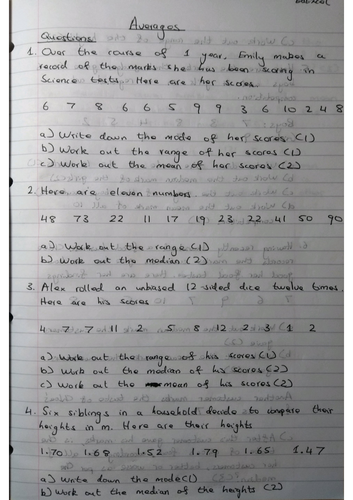 Averages
Questions:
1. Over the course of 1 year, Emily makes a
record of the marks she has been scoring in
Science tests. Here are her scores
6 7 8 6 6 5 9 9 3 6 10 2 4 8
a) Write down the mode of her scores (1)
b) Work out the range of her scores (1)
c) Work out the mean of her scores (2)
2. Here are eleven numbers.
48 73 22 11 17 19 23 22 41 50 90
a) Work out the range (1)
b) Work out the median (2)
3. Alex rolled an unbased 12 sided dice twelve times.
Here are his scores
4 7 7 11 2 5 8 12 2 3 1 2
a) Work out the range of his scores (1)
b) Work out the median of his scores (2)
c) Work out the mean of his scores (2)
4. Six siblings in a household decide to compare their
heights in m. Here are their heights
1.70 1.68 1.52 1.79 1.65 1.47
a) Write down the mode (1)
b) Work out the median of the heights (2)